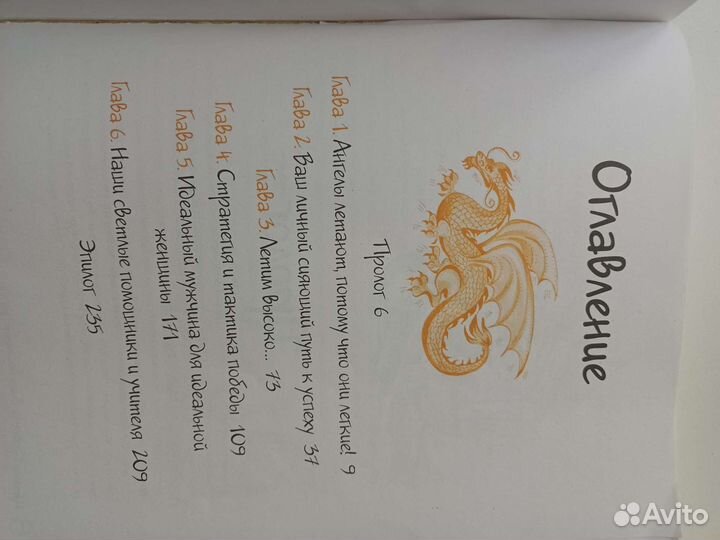 Оглавление
Пролог 6
Глава 1. Ангелы летают, потому что они легкие! 9
Глава 2. Ваш личный сияющий путь к успеху 37
Глава 3. Летим высоко... 73
Глава 4. Стратегия и тактика победы 109
Глава 5. Идеальный мужчина для идеальной
женщины 171
Глава 6. Наши светлые помощники и учителя 209
Эпилог 235
Avito